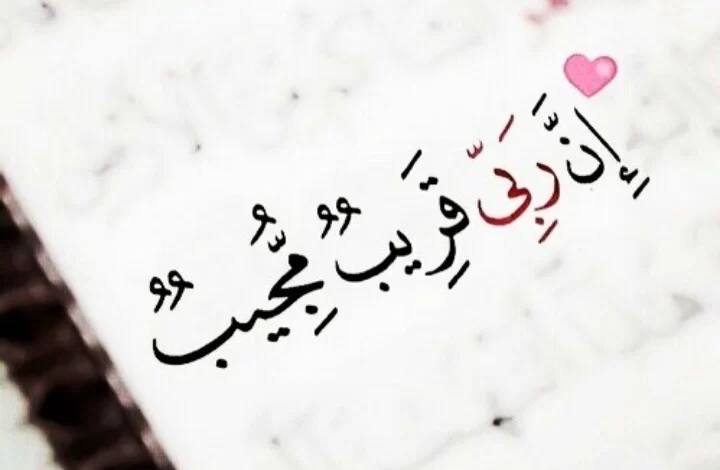 إِنَّ رَبِّىَّ قَرِيبٌ مُّجِيبٌ